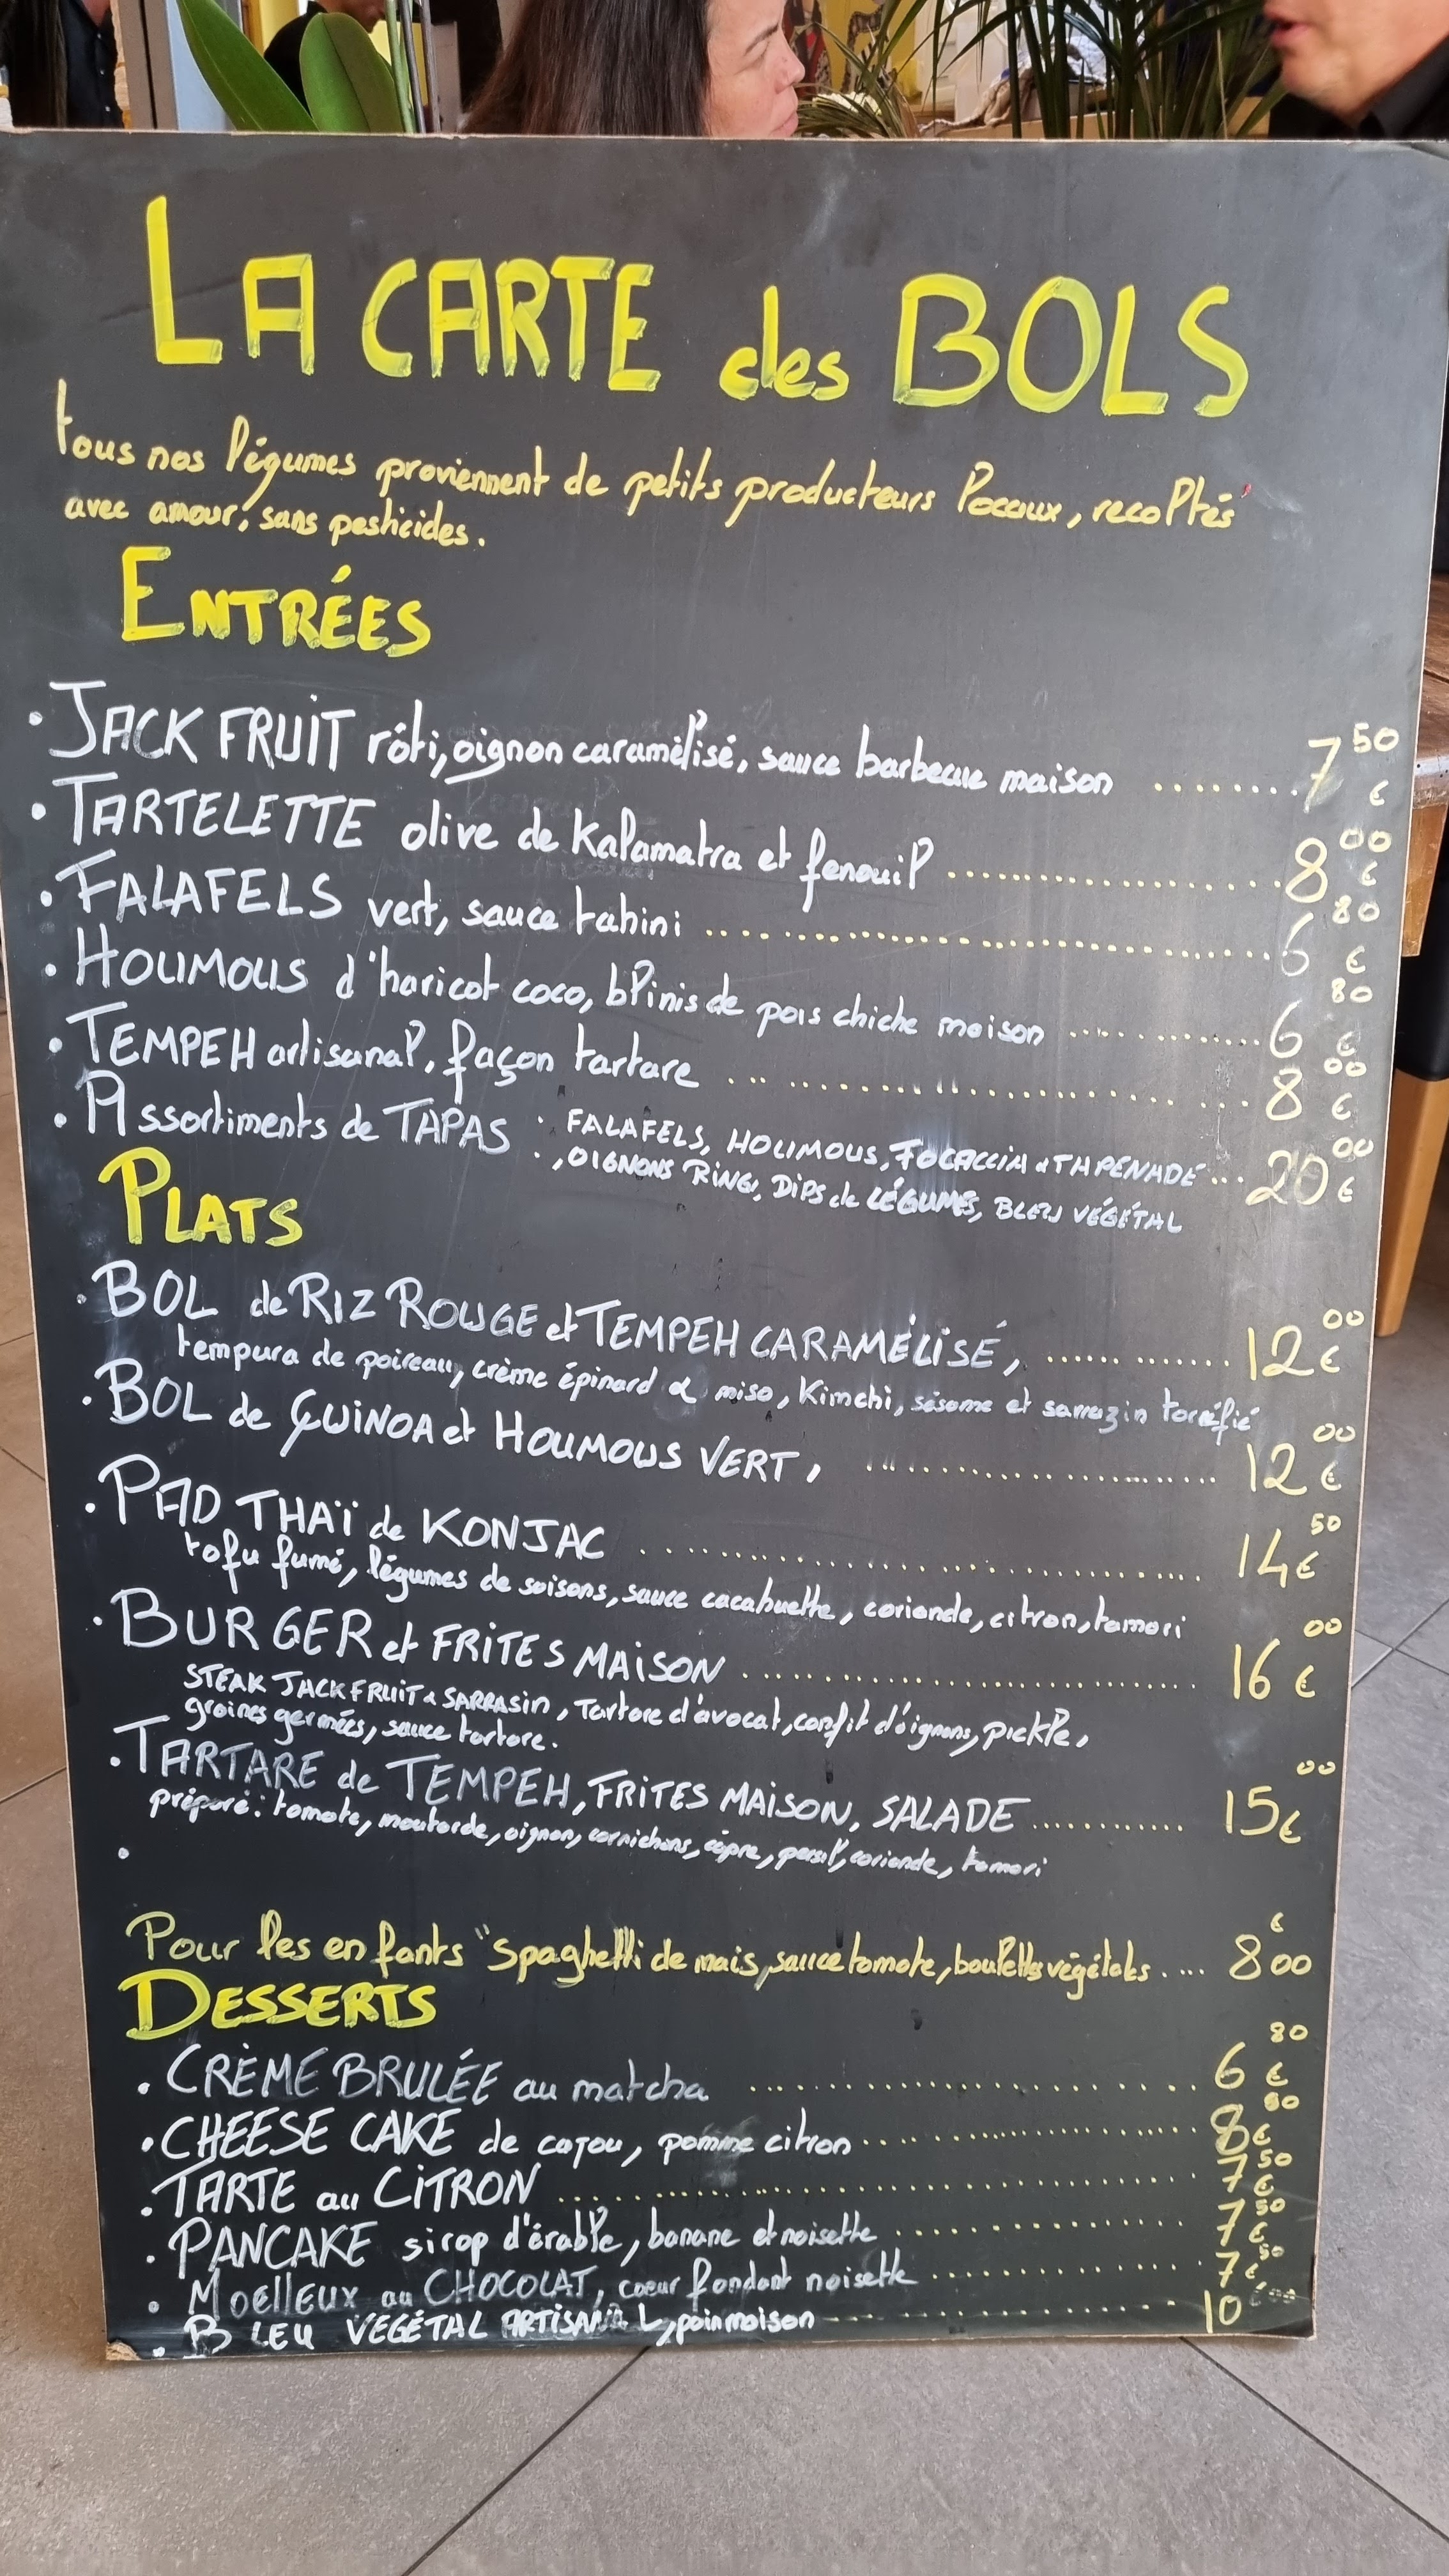 LA CARTE des BOLS
tous nos légumes proviennent de petits producteurs locaux, recoltés
avec amour, sans pesticides.
ENTRÉES
• JACK FRUIT rôti, oignon caramélisé, sauce barbecue maison ........ 7 50 €
• TARTELETTE olive de Kalamatra et fenouil ........ 8 00 €
• FALAFELS vert, sauce tahini ........ 6 80 €
• HOUMOUS d'haricot coco, blinis de pois chiche maison ........ 6 80 €
• TEMPEH artisanal, façon tartare ........ 8 00 €
• Assortiments de TAPAS : FALAFELS, HOUMOUS, FOCACCIA & TAPENADE ... 20 00 €
, OIGNONS RING, DIPS de LÉGUMES, BLEU VÉGÉTAL
PLATS
• BOL de RIZ ROUGE et TEMPEH CARAMÉLISÉ, ........ 12 00 €
tempura de poireau, crème épinard & miso, Kimchi, sésame et sarrazin torréfié
• BOL de QUINOA et HOUMOUS VERT, ........ 12 00 €
• PAD THAÏ de KONJAC ........ 14 50 €
tofu fumé, légumes de saisons, sauce cacahuette, coriande, citron, tamari
• BURGER et FRITES MAISON ........ 16 00 €
STEAK JACKFRUIT & SARRASIN, Tartare d'avocat, confit d'oignons, pickle,
graines germées, sauce tartare.
• TARTARE de TEMPEH, FRITES MAISON, SALADE ........ 15 00 €
préparé : tomate, moutarde, oignon, cornichons, câpre, persil, coriande, tamari
•
Pour les enfants "Spaghetti de mais, sauce tomate, boulettes végétales .... 8 00 €
DESSERTS
• CRÈME BRULÉE au matcha ........ 6 80 €
• CHEESE CAKE de cajou, pomme citron ........ 8 €
• TARTE au CITRON ........ 7 50 €
• PANCAKE sirop d'érable, banane et noisette ........ 7 50 €
• Moelleux au CHOCOLAT, coeur fondant noisette ........ 7 50 €
• BLEU VEGÉTAL ARTISANAL, pain maison ........ 10 € 00